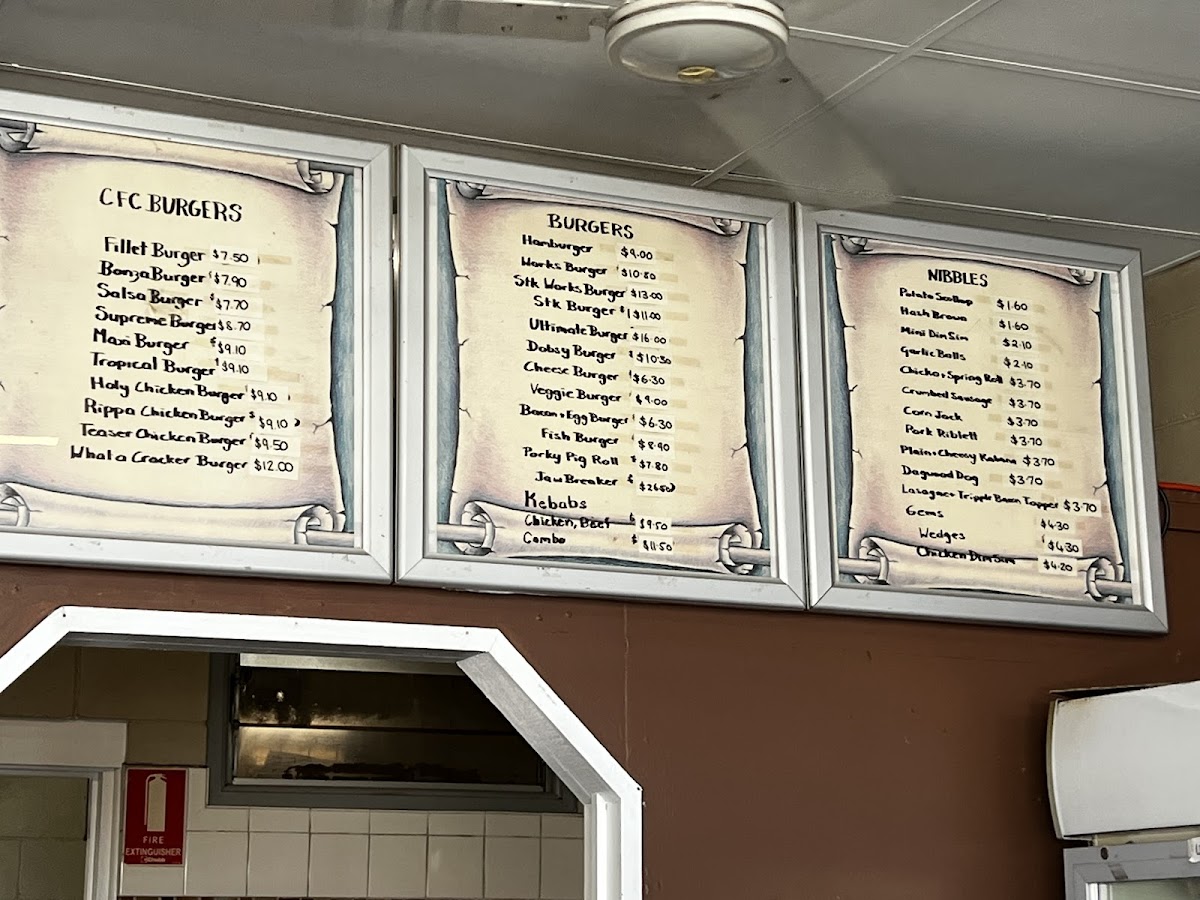 CFC BURGERS
Fillet Burger $7.50
Bonza Burger $7.90
Salsa Burger $7.70
Supreme Burger $8.70
Maxi Burger $9.10
Tropical Burger $9.10
Holy Chicken Burger $9.10
Rippa Chicken Burger $9.10
Teaser Chicken Burger $9.50
What a Cracker Burger $12.00
BURGERS
Hamburger $9.00
Works Burger $10.80
Stk Works Burger $13.00
Stk Burger $11.00
Ultimate Burger $16.00
Dobsy Burger $10.30
Cheese Burger $6.30
Veggie Burger $9.00
Bacon + Egg Burger $6.30
Fish Burger $8.90
Porky Pig Roll $7.80
Jaw Breaker $26.50
Kebabs
Chicken, Beef $9.50
Combo $11.50
NIBBLES
Potato Scallop $1.60
Hash Brown $1.60
Mini Dim Sim $2.10
Garlic Balls $2.10
Chicko + Spring Roll $3.70
Crumbed Sausage $3.70
Corn Jack $3.70
Pork Riblett $3.70
Plain + Cheesy Kabana $3.70
Dagwood Dog $3.70
Lasagne + Tripple Bacon Topper $3.70
Gems $4.30
Wedges $4.30
Chicken Dim Sim $4.20
FIRE
EXTINGUISHER